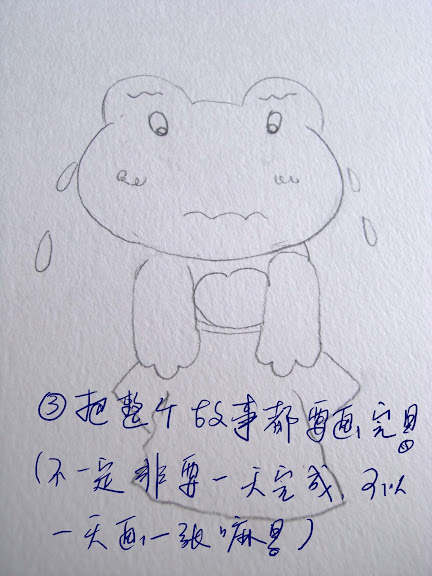 ③把整个故事都要画完
(不一定非要一天完成,可以
一天画一张嘛)